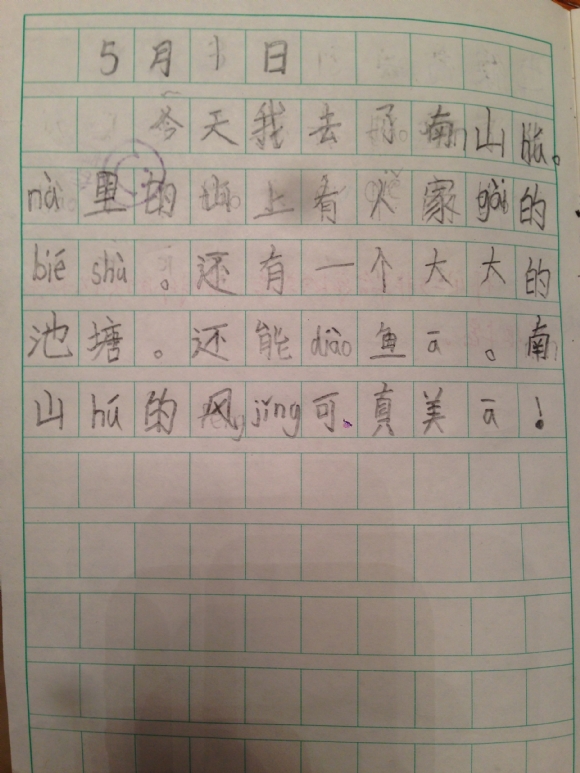 5月1日
今天我去了南山hú。
nài里的山上看人家gài的
bié shù。还有一个大大的
池塘。还能diào鱼ā。南
山hú的风jǐng可真美ā！